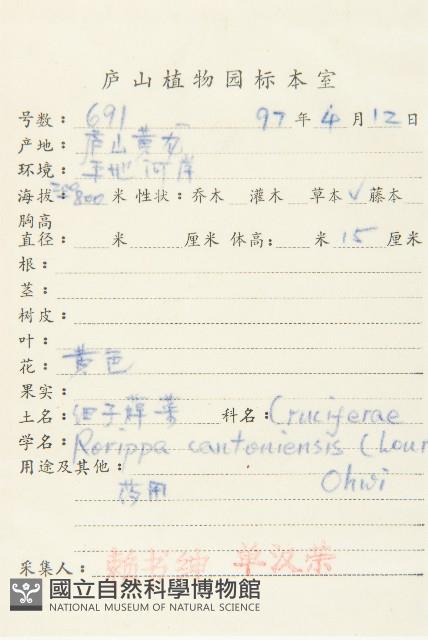 庐山植物园标本室
号数：691 97年4月12日
产地：庐山黄龙
环境：平地河岸
海拔：800米 性状：乔木 灌木 草本✓藤本
胸高
直径： 米 厘米 体高： 米 15 厘米
根：
茎：
树皮：
叶：
花：黄色
果实：
土名：细子蔊菜 科名：Cruciferae
学名：Rorippa cantoniensis (Lour
用途及其他： Ohwi
药用
采集人：赖书绅 单汉荣
國立自然科學博物館
NATIONAL MUSEUM OF NATURAL SCIENCE